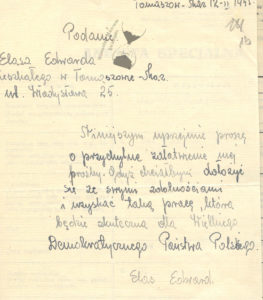 Tomaszów-Maz 12-II 194
Podanie
Elasa Edwarda
zamieszkałego w Tomaszowie-Maz.
ul. Władysława 25.
Niniejszym uprzejmie proszę
o przychylne załatwienie mej
prośby. Gdyż chciałbym dołożyć
się ze swymi zdolnościami
i uzyskać taką pracę, która
będzie skuteczna dla Wielkiego
Demokratycznego Państwa Polskiego.
Elas Edward.